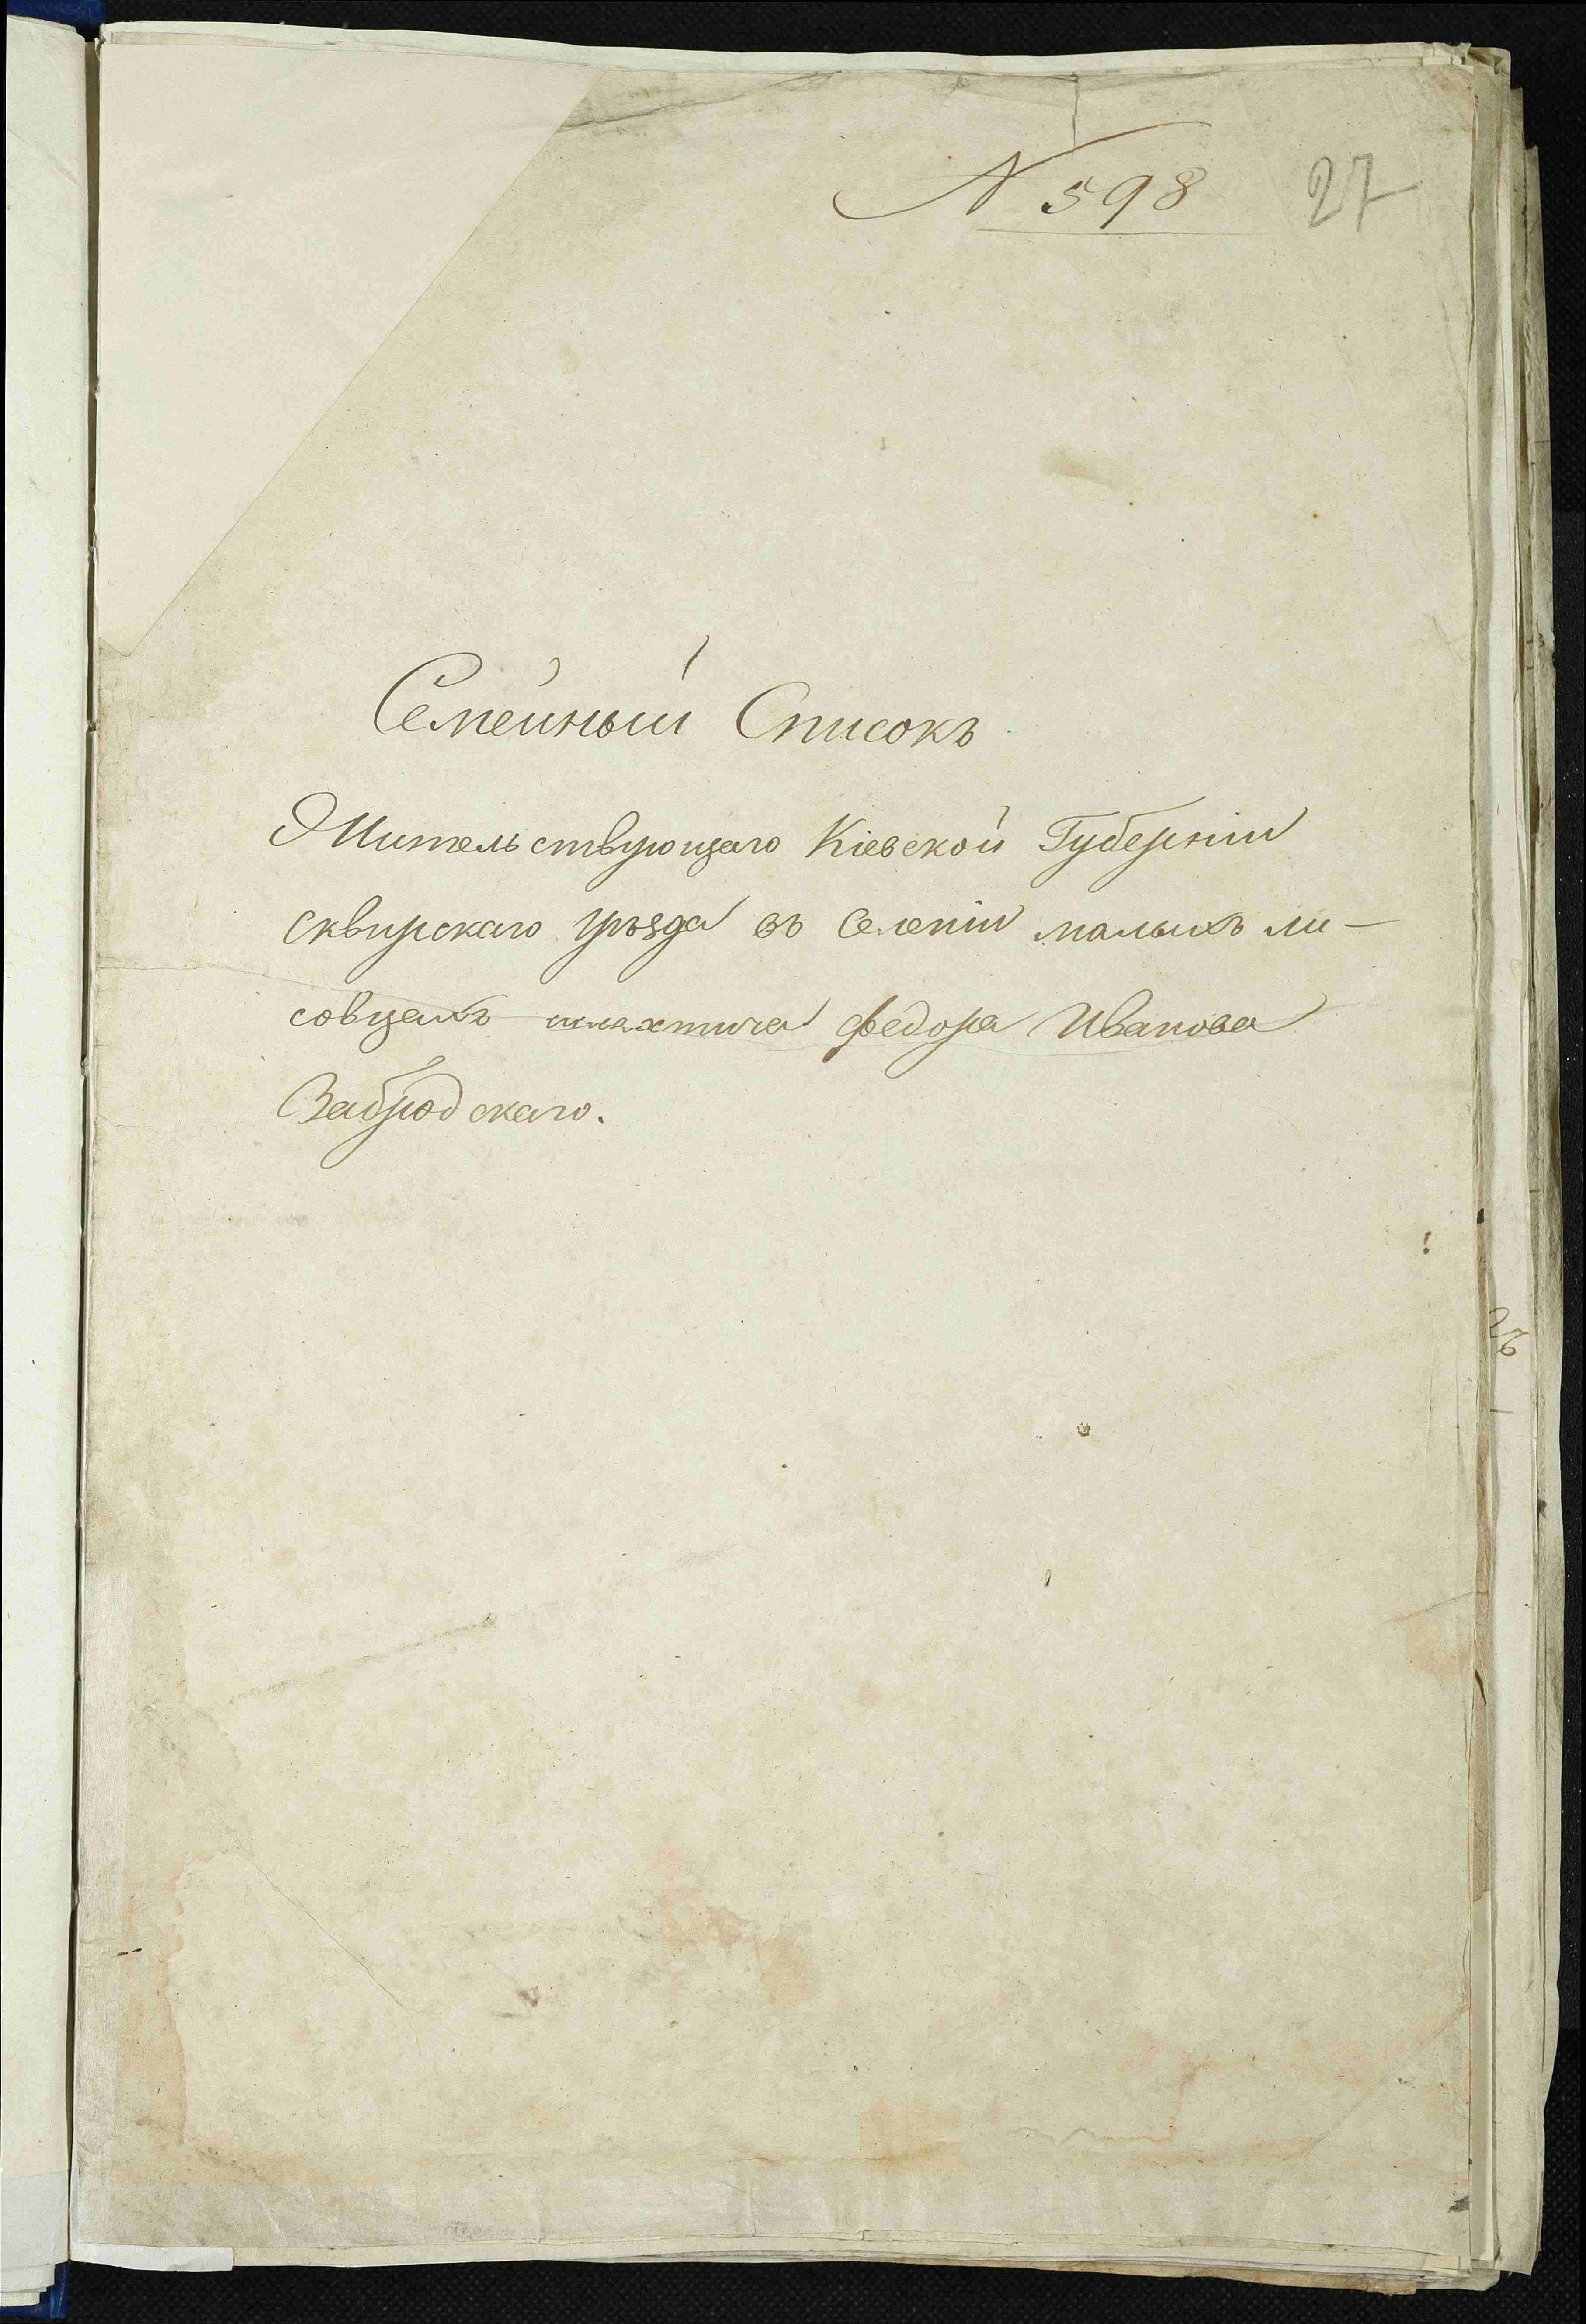 N 598 27
Семейный Списокъ
Жительствующаго Кіевской Губерніи
сквирскаго уѣзда въ Селеніи малыхъ ли-
совцахъ шляхтича Федора Иванова
Забродскаго.